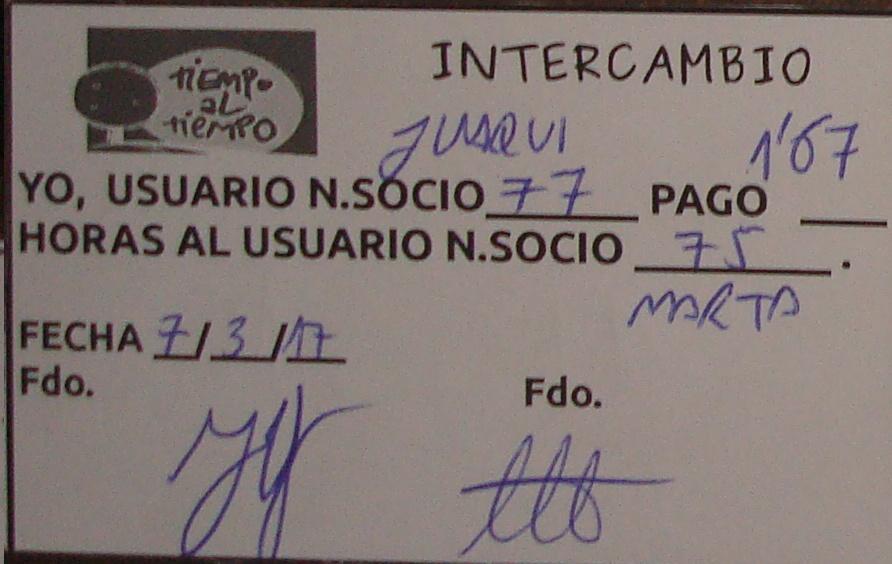 tiEMPO
aL
tiEMPO
INTERCAMBIO
JUSQUI
1'67
YO, USUARIO N.SOCIO 77 PAGO
HORAS AL USUARIO N.SOCIO 75.
MARTA
FECHA 7/3/17
Fdo.
Fdo.